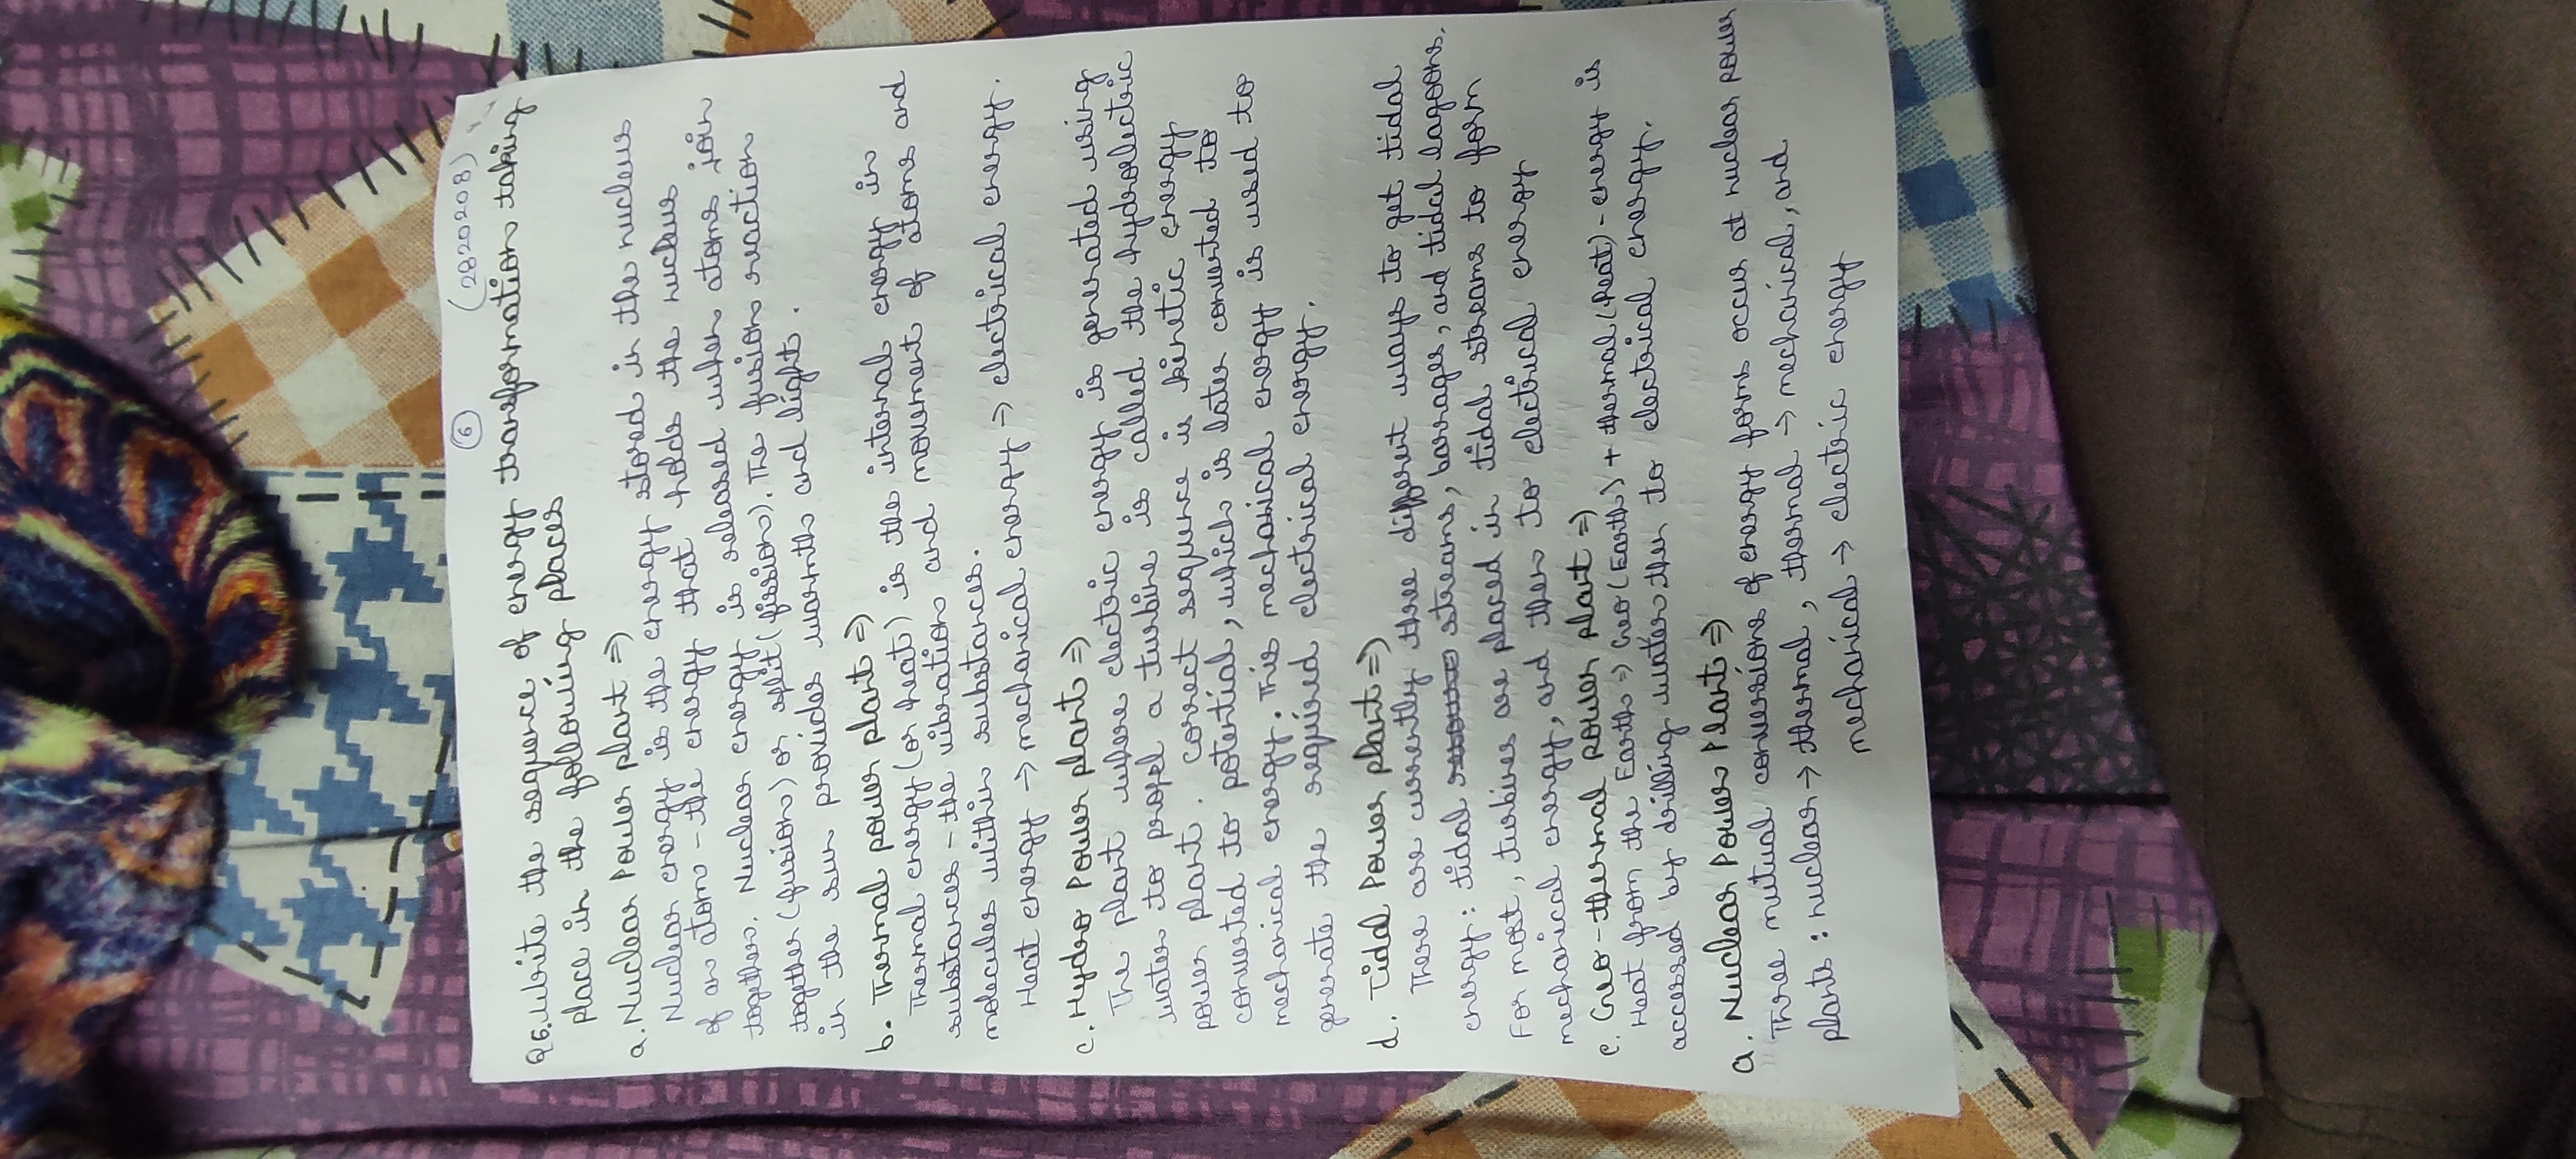 6 (2820208)
Q6. Write the sequence of energy transformation taking
place in the following places
a. Nuclear Power plant ⇒
Nuclear energy is the energy stored in the nucleus
of an atom - the energy that holds the nucleus
together. Nuclear energy is released when atoms join
together (fusion) or split (fission). The fusion reaction
in the sun provides warmth and light.
b. Thermal power plant ⇒
Thermal energy (or heat) is the internal energy in
substances - the vibration and movement of atoms and
molecules within substances.
Heat energy → mechanical energy → electrical energy.
c. Hydro Power plant ⇒
The plant where electric energy is generated using
water to propel a turbine is called the hydroelectric
power plant. Correct sequence is kinetic energy
converted to potential, which is later converted to
mechanical energy. This mechanical energy is used to
generate the required electrical energy.
d. Tidal Power plant ⇒
There are currently three different ways to get tidal
energy: tidal streams, barrages, and tidal lagoons.
For most, turbines are placed in tidal streams to form
mechanical energy, and then to electrical energy
e. Geo-thermal power plant ⇒
Heat from the Earth ⇒ Geo (Earth) + thermal (heat) - energy is
accessed by drilling water then to electrical energy.
a. Nuclear Power Plant ⇒
Three mutual conversions of energy forms occur at nuclear power
plants: nuclear → thermal, thermal → mechanical, and
mechanical → electric energy